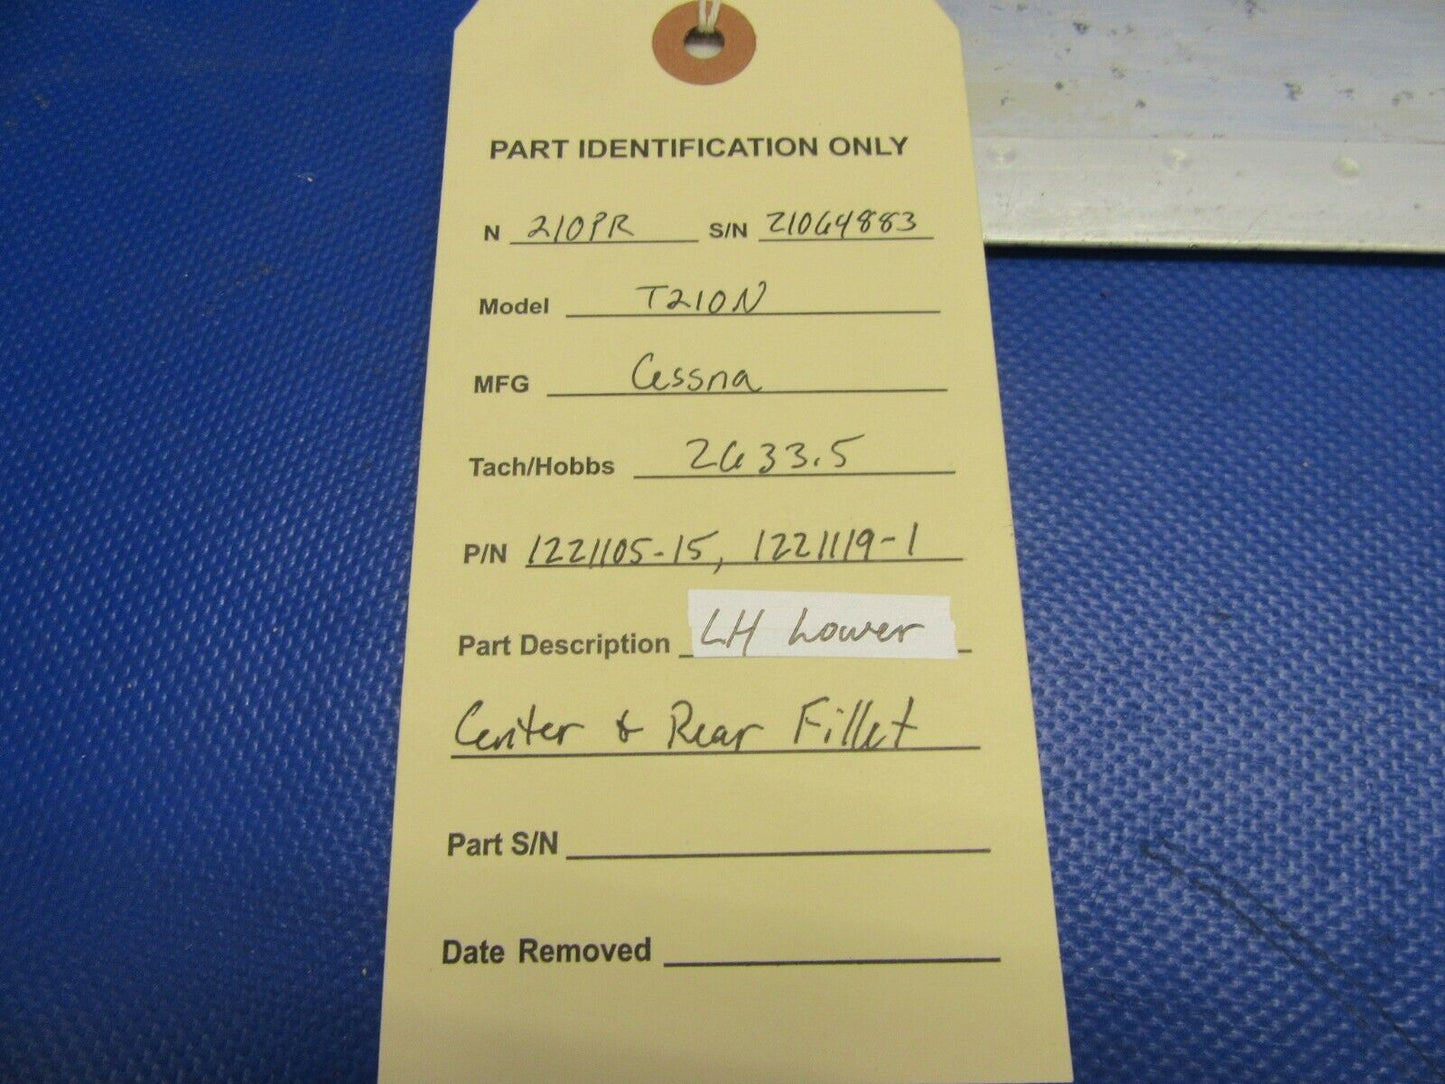 PART IDENTIFICATION ONLY
N 210PR S/N 21064883
Model T210N
MFG Cessna
Tach/Hobbs 2633.5
P/N 1221105-15, 1221119-1
Part Description LH Lower
Center & Rear Fillet
Part S/N
Date Removed